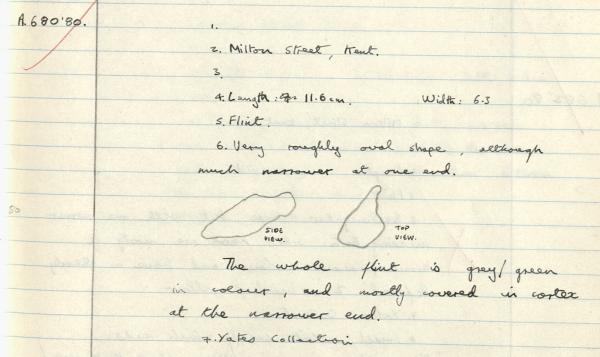 A.680'80.
1.
2. Milton Street, Kent.
3.
4. Length: 11.6cm. Width: 6.3
5. Flint.
6. Very roughly oval shape, although
much narrower at one end.
50
SIDE VIEW.
TOP VIEW.
The whole flint is grey/green
in colour, and mostly covered in cortex
at the narrower end.
7. Yates Collection